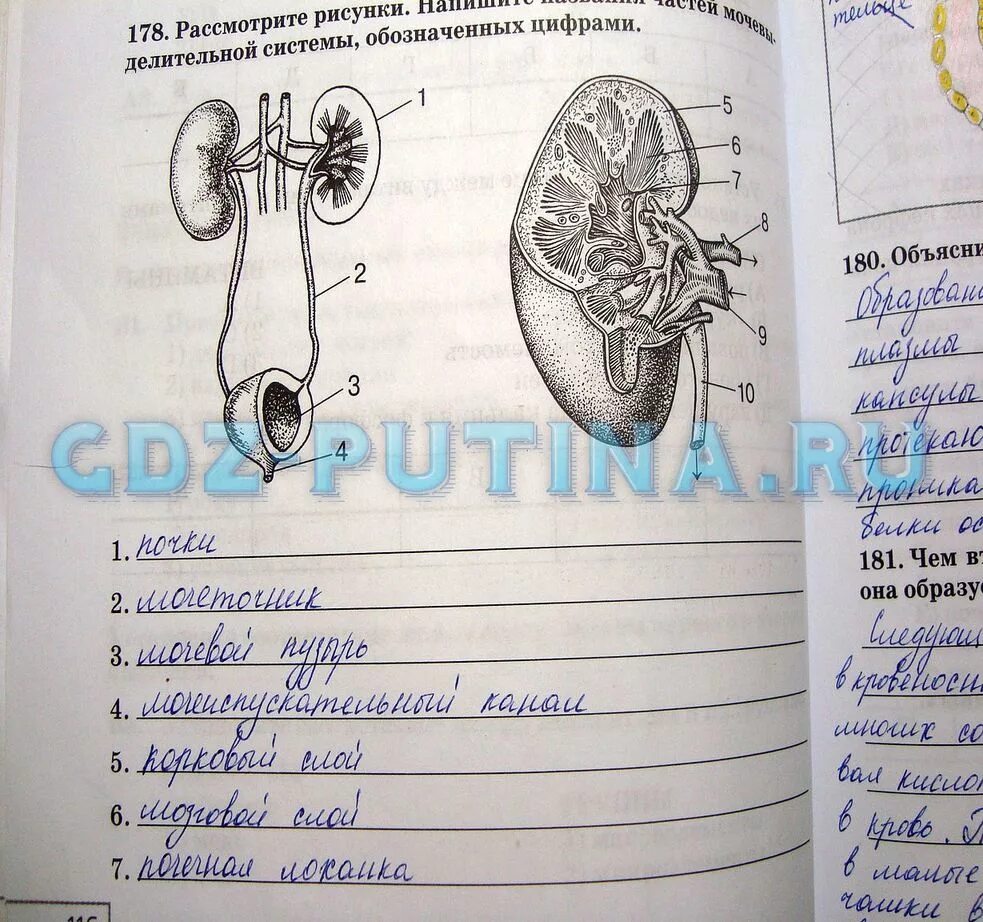 178. Рассмотрите рисунки. Напишите названия частей мочевы-
делительной системы, обозначенных цифрами.
1
2
3
4
5
6
7
8
9
10
GDZ-PUTINA.RU
1. почки
2. мочеточник
3. мочевой пузырь
4. мочеиспускательный канал
5. корковый слой
6. мозговой слой
7. почечная лоханка
116
тельце
180. Объясни
Образован
плазмы
капсулы
протекаю
проника
белки ос
181. Чем вт
она образуе
Следующ
в кровеносн
многих со
вая кислот
в кровь. П
в малые
чашки в